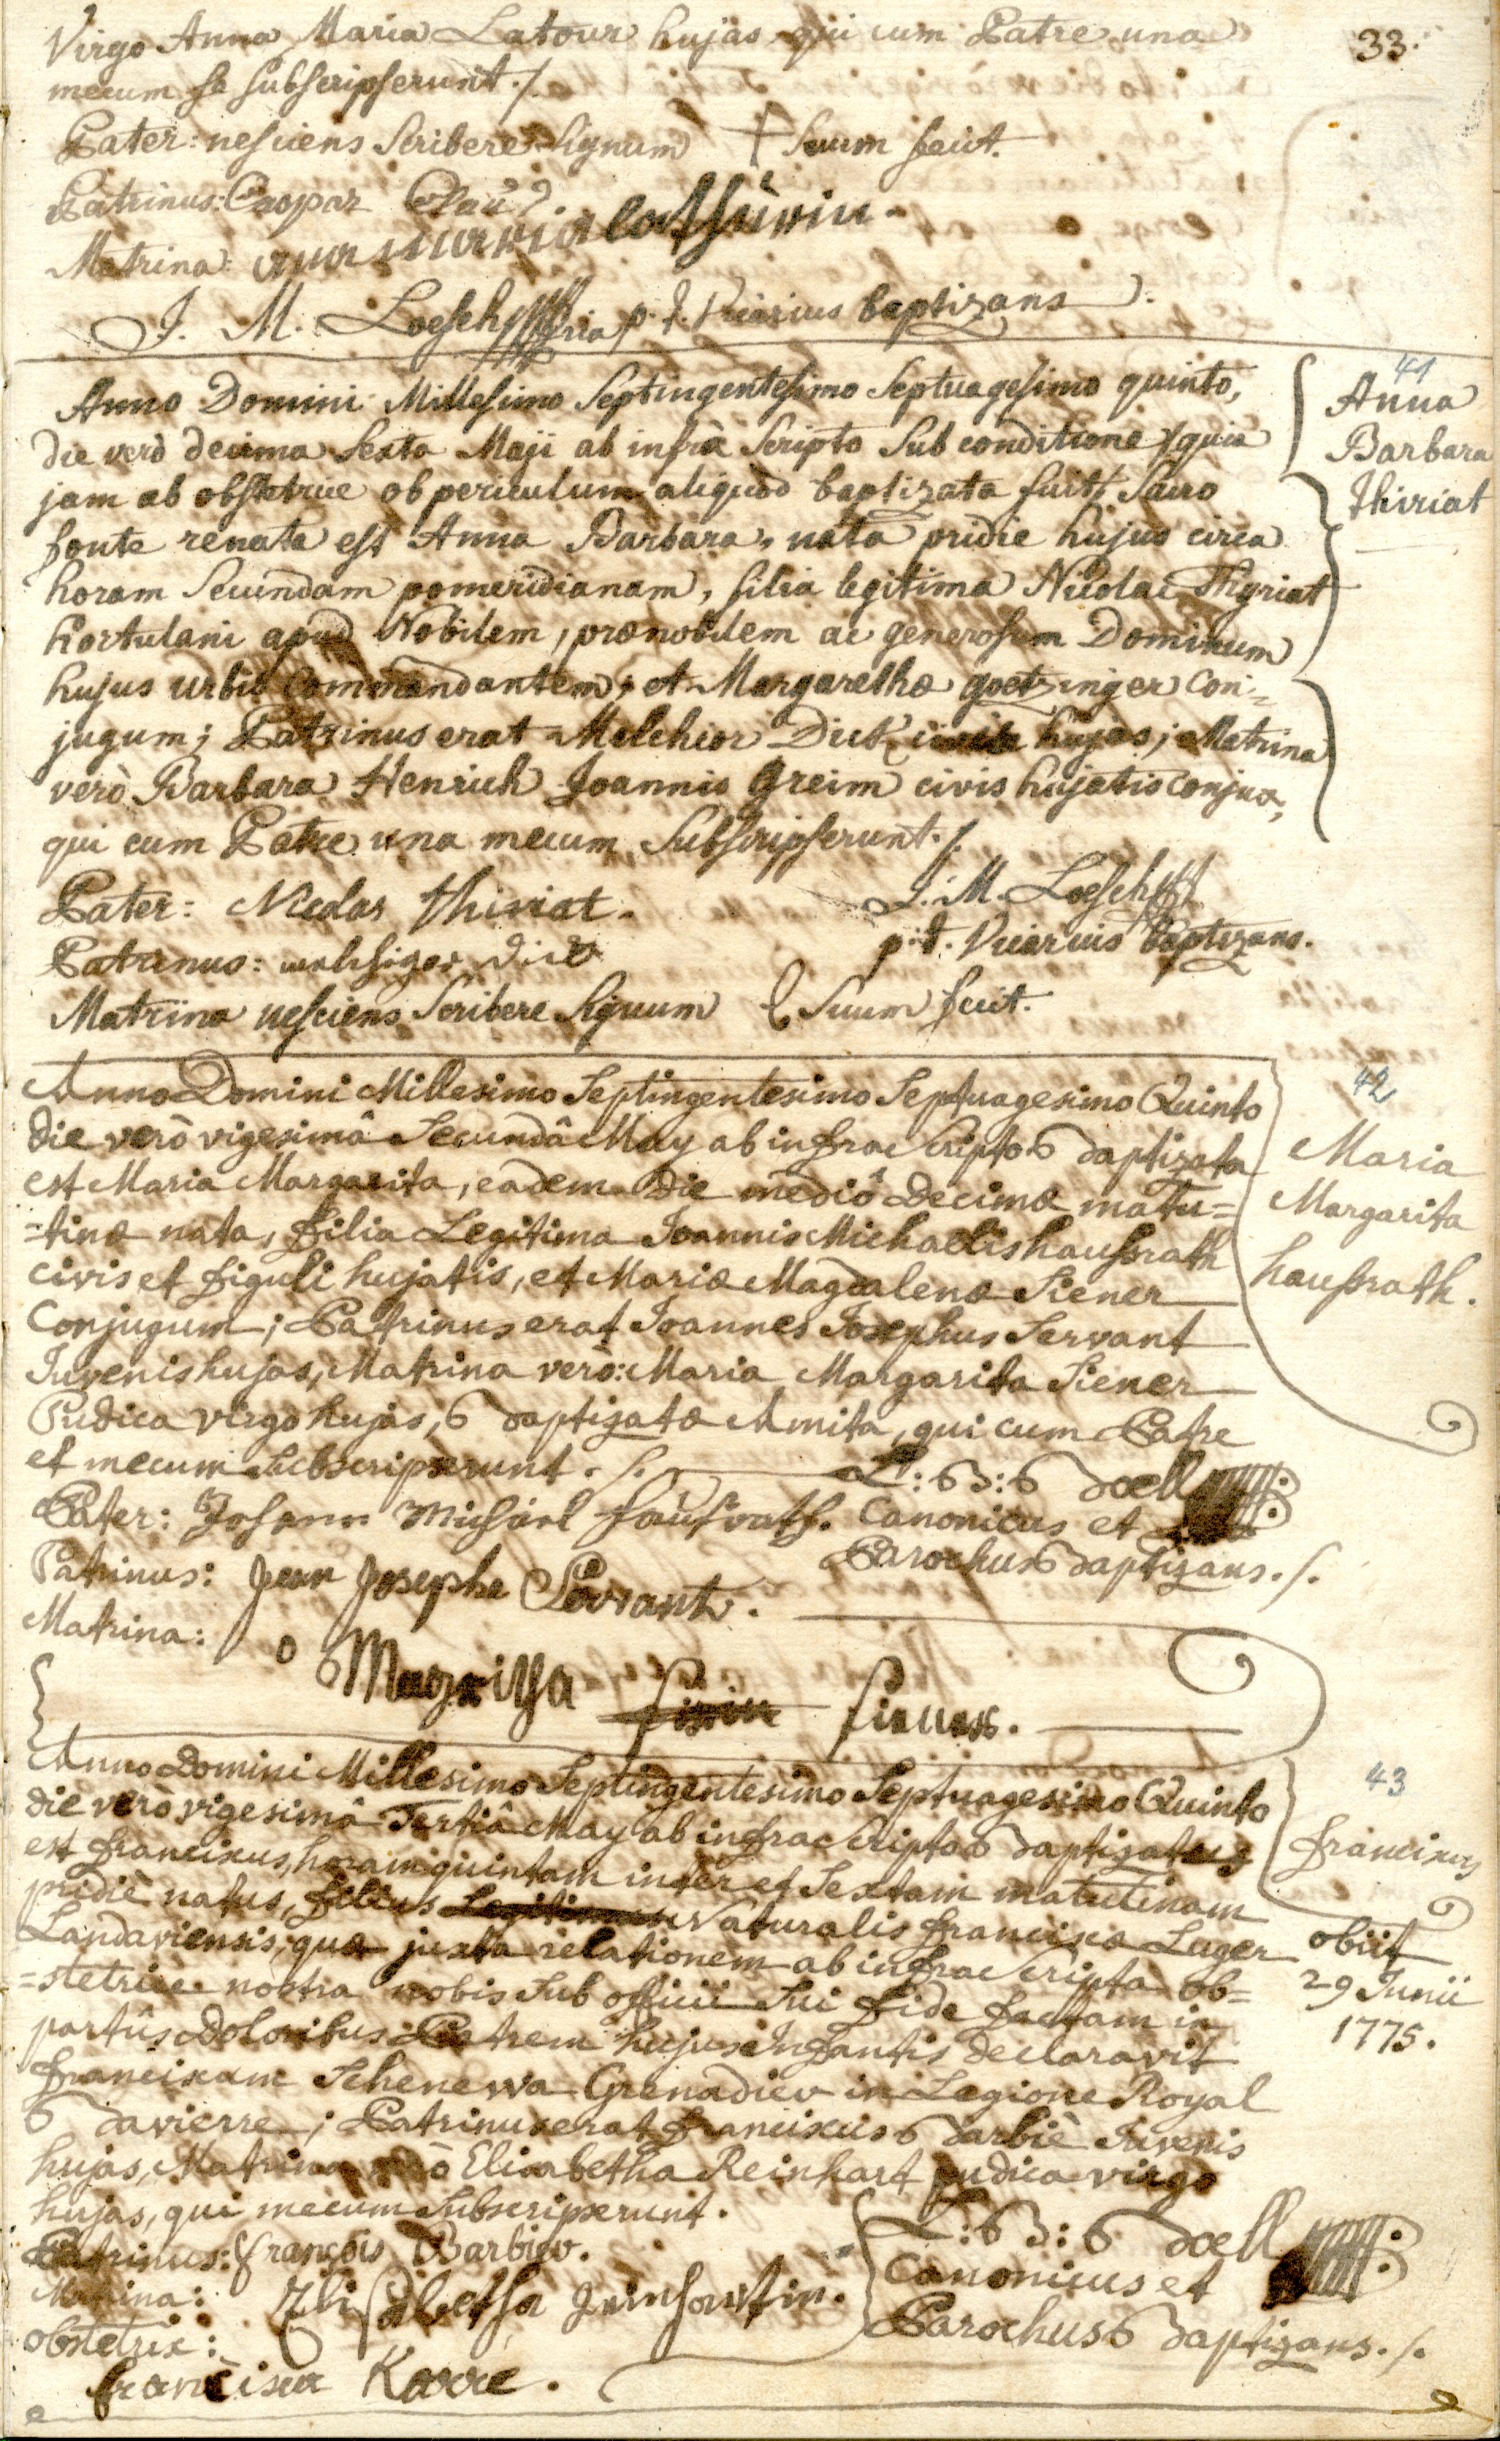 33.
Virgo Anna Maria Latour hujas qui cum Patre una
mecum se subscripserunt ./.
Pater: nesciens scribere signum † suum fecit.
Patrinus: Caspar
Matrina:
J. M. Loesch p. t. Vicarius baptizans
41
Anna
Barbara
Thiriat
Anno Domini Millesimo Septingentesimo Septuagesimo quinto,
die verò decima sexta Maji ab infrà scripto sub conditione /quia
jam ab obstetrice ob periculum aliquod baptizata fuit/ sacro
fonte renata est Anna Barbara, nata pridie hujus circa
horam secundam pomeridianam, filia legitima Nicolai Thyriat
hortulani apud Nobilem, praenobilem ac generosum Dominum
hujus urbis Commendantem; et Margarethae Goetzinger con=
jugum; Patrinus erat Melchior Dick civis hujas; Matrina
verò Barbara Henrich Joannis Greim civis hujatis conjux,
qui cum Patre una mecum subscripserunt ./.
Pater: Nicolas thiriat.
J. M. Loesch
p. t. Vicarius baptizans.
Patrinus:
Matrina nesciens scribere signum suum fecit.
42
Maria
Margarita
haußrath.
Anno Domini Millesimo Septingentesimo Septuagesimo Quinto
die verò vigesimâ Secundâ May ab infra scripto Baptizata
est Maria Margarita, eadem die mediô decimae matu=
=tinae nata, filia Legitima Joannis Michaelis haußrath
civis et figuli hujatis, et Mariae Magdalenae Siener
Conjugum; Patrinus erat Joannes Josephus Servant
Juvenis hujas, Matrina verò: Maria Margarita Siener
Pudica virgo hujas, Baptizatae Amita, qui cum Patre
et mecum subscripserunt ./.
L: B: Boell
Canonicus et
Parochus Baptizans ./.
Pater: Johann Michael Haußrath.
Patrinus: Jean Josephe Servant.
Matrina:
Margritha Siener.
43
franciscus
obiit
29 Junii
1775.
Anno Domini Millesimo Septingentesimo Septuagesimo Quinto
die verò vigesimâ Tertiâ May ab infra scripto Baptizatus
est franciscus, horam quintam inter et Sextam matutinam
pridiè natus, filius Legitimus Naturalis franciscae Luger
Landaviensis, quae juxta relationem ab infra scripta ob=
=stetrice nostra nobis sub officii sui fide factam in
partûs doloribus Patrem hujus Infantis declaravit
franciscum Schenewa Grenadier in Legione Royal
Bavierre; Patrinus erat franciscus Barbiè Juvenis
hujas, Matrina verò Elisabetha Reinhart pudica virgo
hujas, qui mecum subscripserunt.
Patrinus: françois Barbier.
Matrina: Elisabetha
obstetrix:
francisca Karre.
L: B: Boell
Canonicus et
Parochus Baptizans ./.